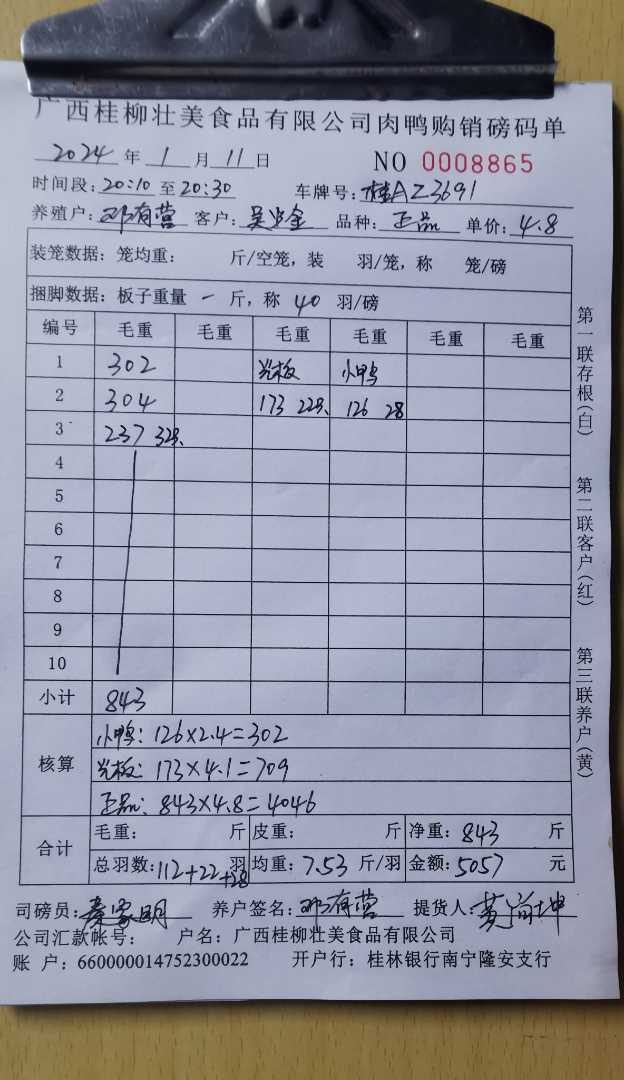 广西桂柳壮美食品有限公司肉鸭购销磅码单
2024 年 1 月 11 日 NO 0008865
时间段: 20:10 至 20:30 车牌号: 桂AZ3691
养殖户: 邓有营 客户: 吴业金 品种: 正品 单价: 4.8
装笼数据: 笼均重: 斤/空笼, 装 羽/笼, 称 笼/磅
捆脚数据: 板子重量 一 斤, 称 40 羽/磅
编号 毛重 毛重 毛重 毛重 毛重 毛重
1 302 光板 小鸭
2 304 173 22只 126 28
3 237 32只
4
5
6
7
8
9
10
小计 843
核算
小鸭: 126×2.4=302
光板: 173×4.1=709
正品: 843×4.8=4046
合计
毛重: 斤 皮重: 斤 净重: 843 斤
总羽数: 112+22+28 羽 均重: 7.53 斤/羽 金额: 5057 元
司磅员: 秦家明 养户签名: 邓有营 提货人:
公司汇款帐号: 户名: 广西桂柳壮美食品有限公司
账 户: 660000014752300022 开户行: 桂林银行南宁隆安支行
第一联存根(白)
第二联客户(红)
第三联养户(黄)